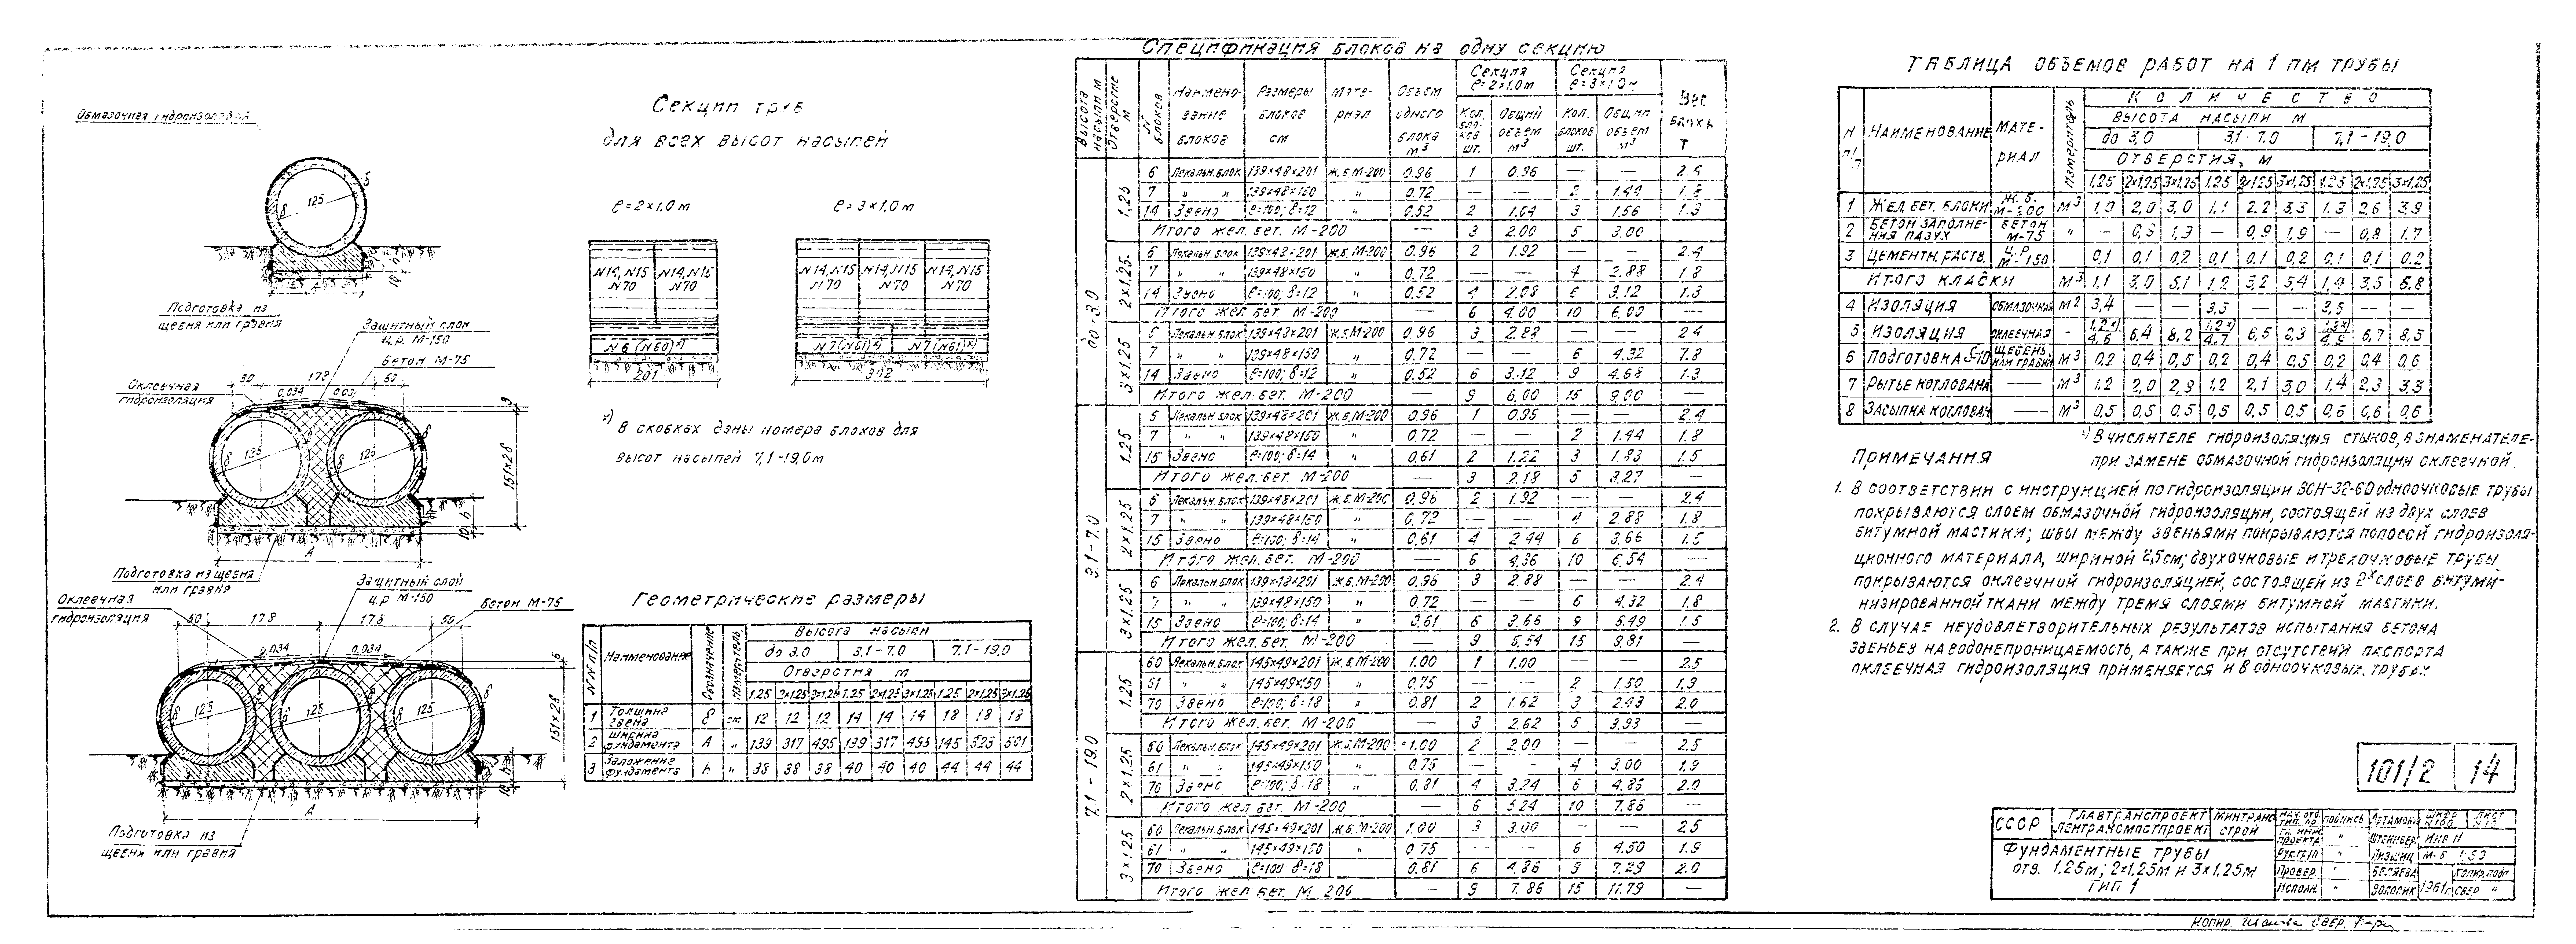 Обмазочная гидроизоляция
125
δ
δ
Подготовка из
щебня или гравия
Защитный слой
ц.р. М-150
Бетон М-75
Оклеечная
гидроизоляция
30 178 50
0,034 0,034
125 125
151+2δ
10 h
А
Подготовка из щебня
или гравия
Защитный слой
ц.р М-150
Оклеечная
гидроизоляция
Бетон М-75
50 178 178 50
0,034 0,034
125 125 125
151+2δ
10 h
А
Подготовка из
щебня или гравия
Секции труб
для всех высот насыпей
ℓ=2×1,0 м ℓ=3×1,0 м
N14, N15 N14, N15 N14, N15 N14, N15 N14, N15
N70 N70 N70 N70 N70
N6 (N60)ˣ⁾ N7 (N61)ˣ⁾ N7 (N61)ˣ⁾
201 302
ˣ⁾ В скобках даны номера блоков для
высот насыпей 7,1-19,0м
Геометрические размеры
NN п/п Наименование Обозначение Измеритель Высота насыпи
до 3.0 3,1-7.0 7,1-19,0
Отверстия м
1.25 2×1.25 3×1.25 1.25 2×1.25 3×1.25 1.25 2×1.25 3×1.25
1 Толщина звена δ см 12 12 12 14 14 14 18 18 18
2 Ширина фундамента А " 139 317 495 139 317 495 145 323 501
3 Заложение фундамента h " 38 38 38 40 40 40 44 44 44
Спецификация блоков на одну секцию
Высота насыпи м Отверстие м № блоков Наимено-вание блоков Размеры блоков см Мате-риал Объем одного блока м³ Секция ℓ=2×1.0м Секция ℓ=3×1.0м Вес блока т
Кол. бло-ков шт. Общий объем м³ Кол. блоков шт. Общий объем м³
до-3.0
1.25
6 Лекальн. блок 139×48×201 ж.б. М-200 0.96 1 0.96 — — 2.4
7 " " 139×48×150 " 0.72 — — 2 1.44 1.8
14 Звено ℓ=100; δ=12 " 0.52 2 1.04 3 1.56 1.3
Итого жел. бет. М-200 — 3 2.00 5 3.00
2×1.25
6 Лекальн. блок 139×48×201 ж.б. М-200 0.96 2 1.92 — — 2.4
7 " " 139×48×150 " 0.72 — — 4 2.88 1.8
14 Звено ℓ=100; δ=12 " 0.52 4 2.08 6 3.12 1.3
Итого жел. бет. М-200 6 4.00 10 6.00 —
3×1.25
6 Лекальн. блок 139×48×201 ж.б. М-200 0.96 3 2.88 — — 2.4
7 " " 139×48×150 " 0.72 — — 6 4.32 1.8
14 Звено ℓ=100; δ=12 " 0.52 6 3.12 9 4.68 1.3
Итого жел. бет. М-200 — 9 6.00 15 9.00 —
3.1-7.0
1.25
6 Лекальн. блок 139×48×201 ж.б. М-200 0.96 1 0.96 — — 2.4
7 " " 139×48×150 " 0,72 — — 2 1.44 1.8
15 Звено ℓ=100; δ=14 " 0,61 2 1.22 3 1.83 1.5
Итого жел. бет. М-200 — 3 2.18 5 3.27 —
2×1.25
6 Лекальн. блок 139×48×201 ж.б. М-200 0,96 2 1.92 — — 2.4
7 " " 139×48×150 " 0,72 — — 4 2.88 1.8
15 Звено ℓ=100; δ=14 " 0.61 4 2.44 6 3.66 1.5
Итого жел. бет. М-200 — 6 4,36 10 6.54 —
3×1.25
6 Лекальн. блок 139×48×201 ж.б. М-200 0,96 3 2.88 — — 2.4
7 " " 139×48×150 " 0,72 — — 6 4.32 1.8
15 Звено ℓ=100; δ=14 " 0.61 6 3.66 9 5.49 1.5
Итого жел. бет. М-200 — 9 6.54 15 9.81 —
7.1-19.0
1.25
60 Лекальн. блок 145×49×201 ж.б. М-200 1.00 1 1.00 — — 2.5
61 " " 145×49×150 " 0.75 — — 2 1.50 1.9
70 Звено ℓ=100; δ=18 " 0.81 2 1.62 3 2.43 2.0
Итого жел. бет. М-200 — 3 2.62 5 3.93 —
2×1.25
60 Лекальн. блок 145×49×201 ж.б. М-200 1.00 2 2.00 — — 2.5
61 " " 145×49×150 " 0.75 — — 4 3.00 1.9
70 Звено ℓ=100; δ=18 " 0,81 4 3.24 6 4.86 2.0
Итого жел. бет. М-200 — 6 5.24 10 7.86 —
3×1.25
60 Лекальн. блок 145×49×201 ж.б. М-200 1.00 3 3.00 — — 2.5
61 " " 145×49×150 " 0.75 — — 6 4.50 1.9
70 Звено ℓ=100 δ=18 " 0.81 6 4.86 9 7.29 2.0
Итого жел. бет. М 200 — 9 7.86 15 11.79 —
ТАБЛИЦА ОБЪЕМОВ РАБОТ НА 1 ПМ ТРУБЫ
N п/п НАИМЕНОВАНИЕ МАТЕ-РИАЛ Измеритель КОЛИЧЕСТВО
ВЫСОТА НАСЫПИ М
до 3,0 3,1-7.0 7,1-19,0
ОТВЕРСТИЯ, М
1,25 2×1,25 3×1,25 1,25 2×1,25 3×1,25 1,25 2×1,25 3×1,25
1 ЖЕЛ БЕТ. БЛОКИ Ж.Б. М-200 М³ 1,0 2,0 3,0 1,1 2.2 3,3 1.3 2,6 3,9
2 БЕТОН ЗАПОЛНЕ-НИЯ ПАЗУХ БЕТОН М-75 " — 0,9 1,9 — 0,9 1,9 — 0,8 1,7
3 ЦЕМЕНТН. РАСТВ. Ц.Р. М-150 0,1 0,1 0,2 0,1 0,1 0,2 0,1 0,1 0.2
ИТОГО КЛАДКИ М³ 1,1 3,0 5,1 1,2 3,2 5,4 1,4 3,5 5,8
4 ИЗОЛЯЦИЯ ОБМАЗОЧНАЯ М² 3,4 — — 3,5 — — 3,6 — —
5 ИЗОЛЯЦИЯ ОКЛЕЕЧНАЯ - 1,2ˣ⁾/4,6 6,4 8,2 1,2ˣ⁾/4,7 6,5 8,3 1,3ˣ⁾/4,9 6,7 8,5
6 ПОДГОТОВКА δ-10 ЩЕБЕНЬ ИЛИ ГРАВИЙ М³ 0,2 0,4 0,5 0,2 0,4 0,5 0,2 0,4 0,6
7 РЫТЬЕ КОТЛОВАНА — М³ 1,2 2,0 2,9 1,2 2,1 3,0 1,4 2,3 3,3
8 ЗАСЫПКА КОТЛОВАН — М³ 0,5 0,5 0,5 0,5 0,5 0,5 0,6 0,6 0,6
ˣ⁾ В ЧИСЛИТЕЛЕ ГИДРОИЗОЛЯЦИЯ СТЫКОВ, В ЗНАМЕНАТЕЛЕ-
ПРИ ЗАМЕНЕ ОБМАЗОЧНОЙ ГИДРОИЗОЛЯЦИИ ОКЛЕЕЧНОЙ.
ПРИМЕЧАНИЯ
1. В СООТВЕТСТВИИ С ИНСТРУКЦИЕЙ ПО ГИДРОИЗОЛЯЦИИ ВСН-32-60 ОДНООЧКОВЫЕ ТРУБЫ
ПОКРЫВАЮТСЯ СЛОЕМ ОБМАЗОЧНОЙ ГИДРОИЗОЛЯЦИИ, СОСТОЯЩЕЙ ИЗ ДВУХ СЛОЕВ
БИТУМНОЙ МАСТИКИ; ШВЫ МЕЖДУ ЗВЕНЬЯМИ ПОКРЫВАЮТСЯ ПОЛОСОЙ ГИДРОИЗОЛЯ-
ЦИОННОГО МАТЕРИАЛА, ШИРИНОЙ 25см; ДВУХОЧКОВЫЕ И ТРЕХОЧКОВЫЕ ТРУБЫ
ПОКРЫВАЮТСЯ ОКЛЕЕЧНОЙ ГИДРОИЗОЛЯЦИЕЙ, СОСТОЯЩЕЙ ИЗ 2ˣ СЛОЕВ БИТУМИ-
НИЗИРОВАННОЙ ТКАНИ МЕЖДУ ТРЕМЯ СЛОЯМИ БИТУМНОЙ МАСТИКИ.
2. В СЛУЧАЕ НЕУДОВЛЕТВОРИТЕЛЬНЫХ РЕЗУЛЬТАТОВ ИСПЫТАНИЯ БЕТОНА
ЗВЕНЬЕВ НА ВОДОНЕПРОНИЦАЕМОСТЬ, А ТАКЖЕ ПРИ ОТСУТСТВИИ ПАСПОРТА
ОКЛЕЕЧНАЯ ГИДРОИЗОЛЯЦИЯ ПРИМЕНЯЕТСЯ И В ОДНООЧКОВЫХ ТРУБАХ
101/2 14
СССР ГЛАВТРАНСПРОЕКТ ЛЕНТРАНСМОСТПРОЕКТ МИНТРАНС СТРОЙ
ФУНДАМЕНТНЫЕ ТРУБЫ
ОТВ. 1.25м; 2×1,25м и 3×1.25м
ТИП 1
НАЧ. ОТД. ТИП. ПР. ПОДПИСЬ АРТАМОНОВ
ГЛ. ИНЖ. ПРОЕКТА " Инв. N
Рук. груп " М-Б 1:50
Провер. " БЕЛЯЕВА
Исполн. " 1961г. СВЕР "
КОПИР. СВЕР.